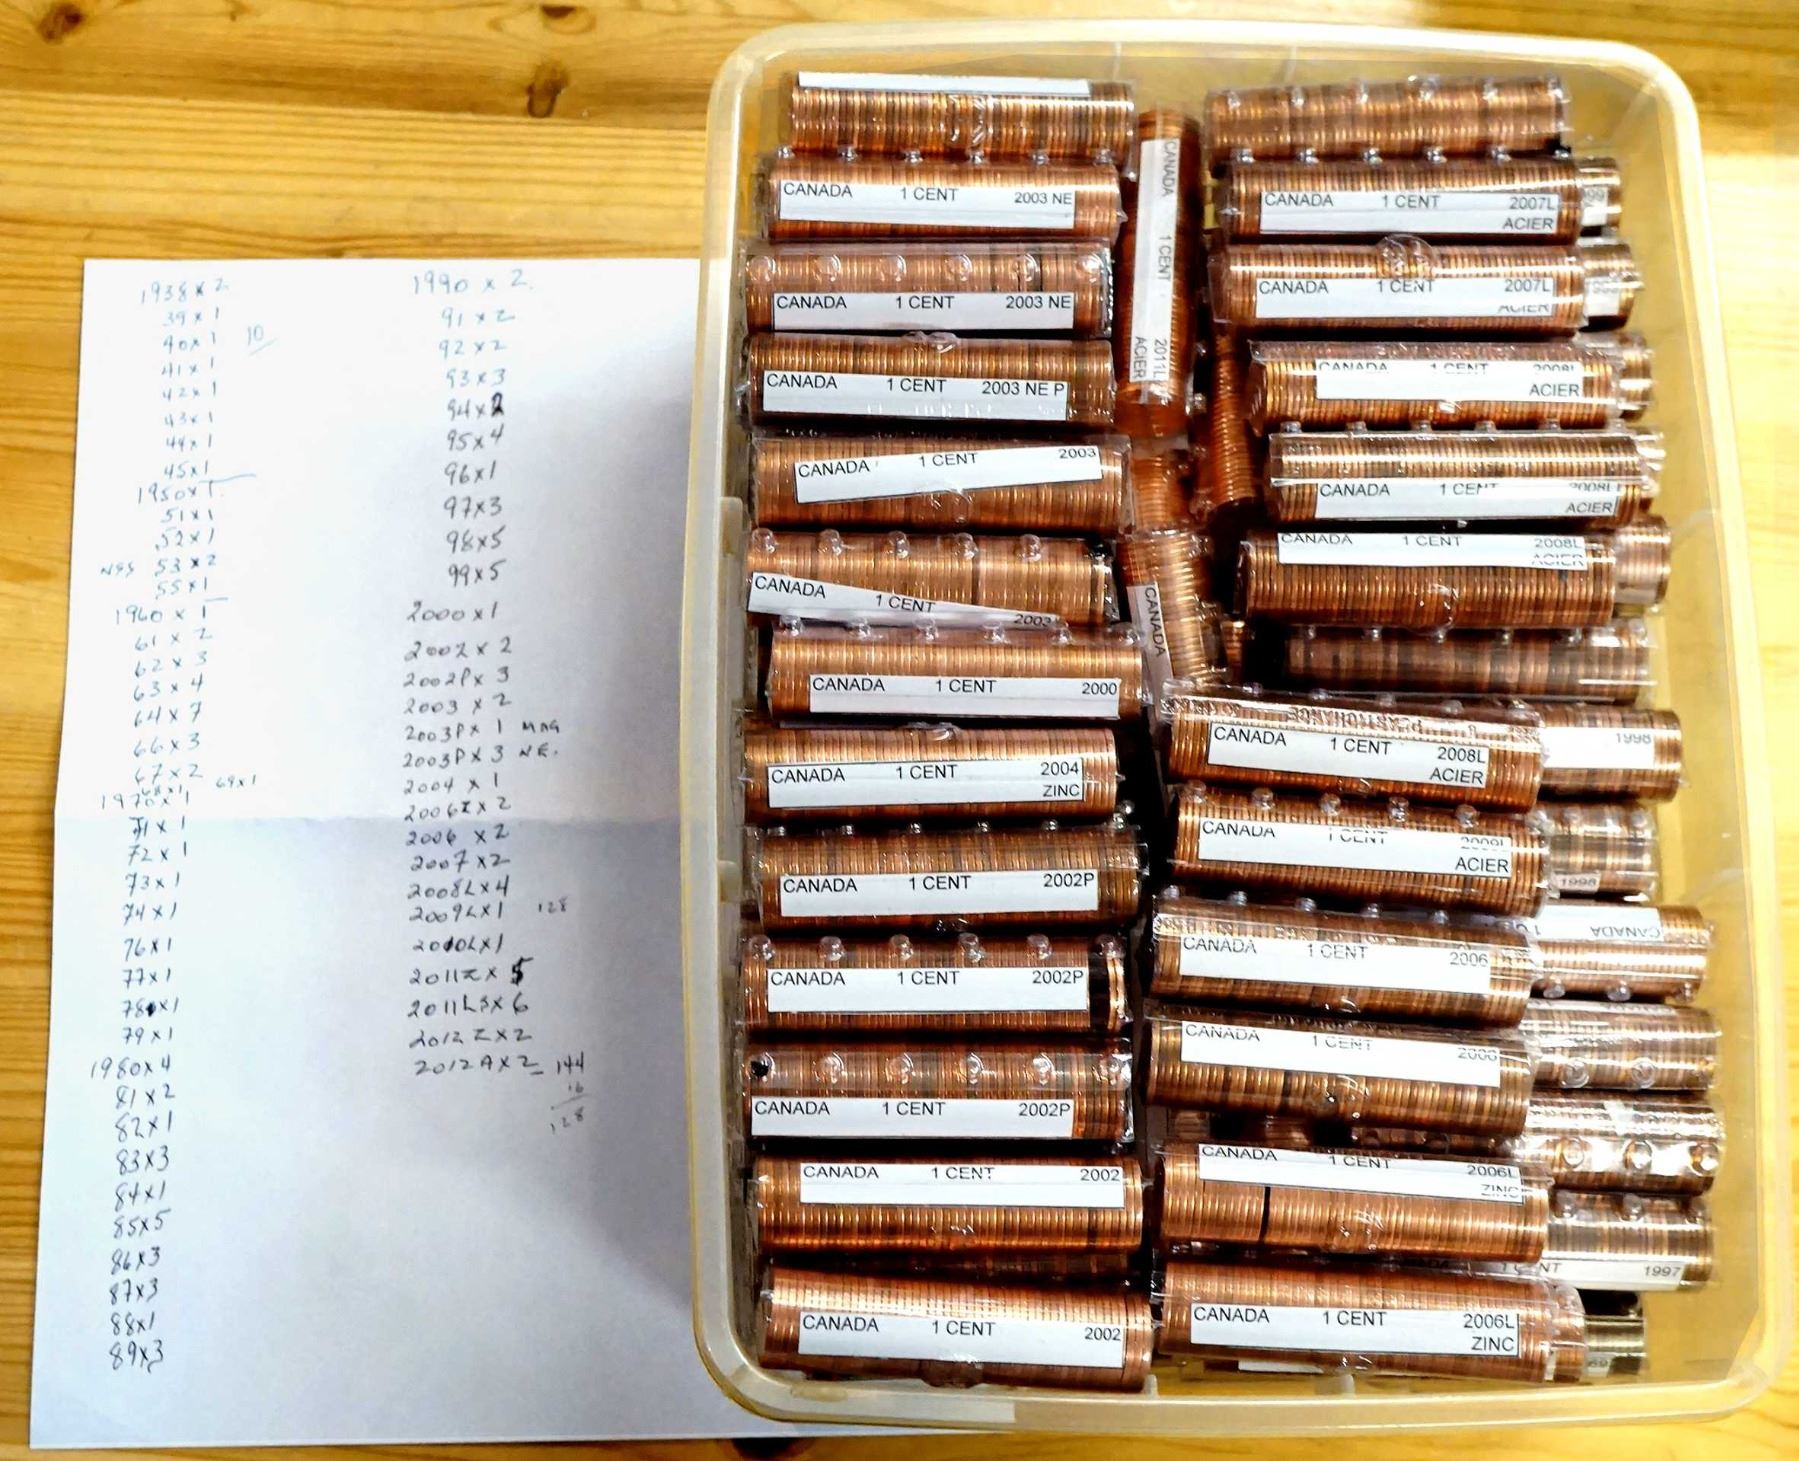 1938 x 2
39 x 1
40 x 1 10
41 x 1
42 x 1
43 x 1
44 x 1
45 x 1
1950 x 1
51 x 1
52 x 1
NSS 53 x 2
55 x 1
1960 x 1
61 x 2
62 x 3
63 x 4
64 x 7
66 x 3
67 x 2
68 x 1 69 x 1
1970 x 1
71 x 1
72 x 1
73 x 1
74 x 1
76 x 1
77 x 1
78 x 1
79 x 1
1980 x 4
81 x 2
82 x 1
83 x 3
84 x 1
85 x 5
86 x 3
87 x 3
88 x 1
89 x 3
1990 x 2
91 x 2
92 x 2
93 x 3
94 x 2
95 x 4
96 x 1
97 x 3
98 x 5
99 x 5
2000 x 1
2002 x 2
2002P x 3
2003 x 2
2003P x 1 MAG
2003P x 3 NE.
2004 x 1
2006Z x 2
2006 x 2
2007 x 2
2008L x 4
2009L x 1 128
2010L x 1
2011Z x 5
2011LS x 6
2012 Z x 2
2012 A x 2 144
16
128
CANADA 1 CENT 2003 NE
CANADA 1 CENT 2003 NE
CANADA 1 CENT 2003 NE P
CANADA 1 CENT 2003
CANADA 1 CENT 2003
CANADA 1 CENT 2000
CANADA 1 CENT 2004
ZINC
CANADA 1 CENT 2002P
CANADA 1 CENT 2002P
CANADA 1 CENT 2002P
CANADA 1 CENT 2002
CANADA 1 CENT 2002
CANADA 1 CENT 2011L
ACIER
CANADA
CANADA 1 CENT 2007L
ACIER
CANADA 1 CENT 2007L
ACIER
CANADA 1 CENT 2008L
ACIER
CANADA 1 CENT 2008L
ACIER
CANADA 1 CENT 2008L
ACIER
CANADA 1 CENT 2008L
ACIER
1998
CANADA 1 CENT 2009L
ACIER
1998
CANADA 1 CENT 2006
CANADA
CANADA 1 CENT 2006
CANADA 1 CENT 2006L
ZINC
1997
CANADA 1 CENT 2006L
ZINC